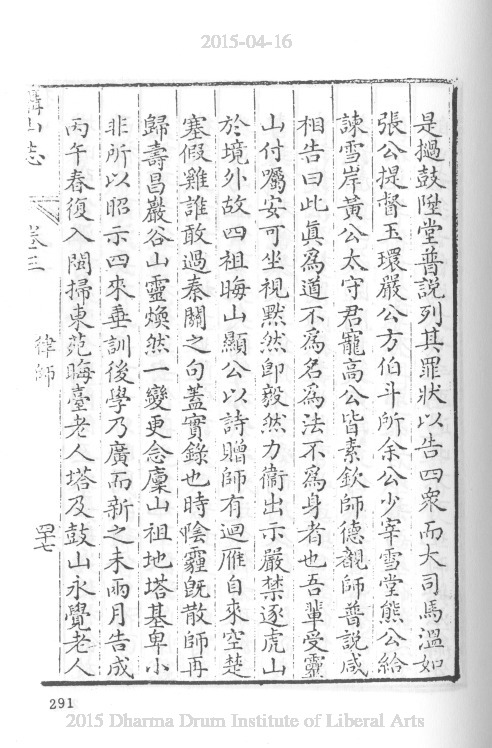 2015-04-16
是撾鼓陞堂普說列其罪狀以告四衆而大司馬溫如
張公提督玉環嚴公方伯斗所余公少宰雪堂熊公給
諫雪岸黃公太守君寵高公皆素欽師德覩師普說咸
相告曰此眞爲道不爲名爲法不爲身者也吾輩受靈
山付囑安可坐視默然卽毅然力衞出示嚴禁逐虎山
於境外故四祖晦山顯公以詩贈師有迴雁自來空楚
塞假雞誰敢過秦關之句蓋實錄也時陰霾旣散師再
歸壽昌巖谷山靈煥然一變更念廩山祖地塔基卑小
非所以昭示四來垂訓後學乃廣而新之未兩月告成
丙午春復入閩掃東苑晦臺老人塔及鼓山永覺老人
山志
卷三
律師
四十七
291
2015 Dharma Drum Institute of Liberal Arts